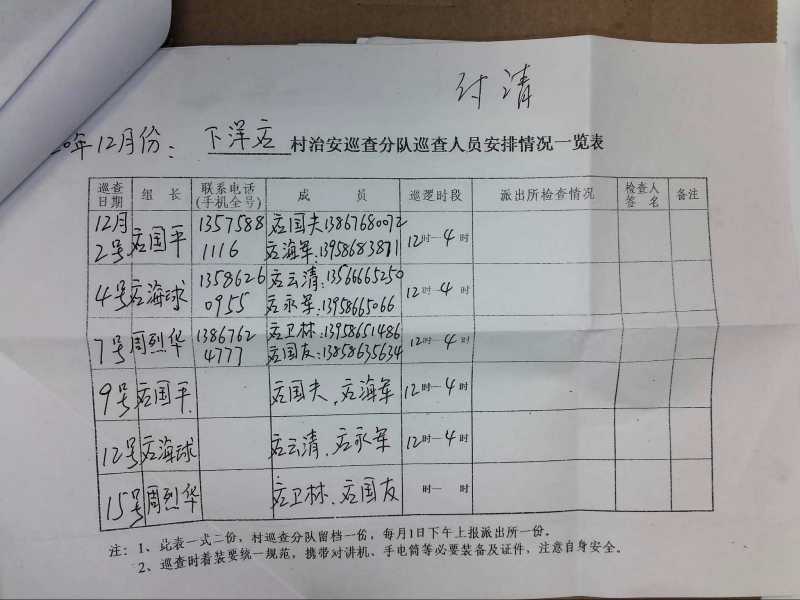 付清
20年12月份：下洋应村治安巡查分队巡查人员安排情况一览表
巡查日期 组长 联系电话(手机全号) 成员 巡逻时段 派出所检查情况 检查人签名 备注
12月2号 应国平 1357588 1116 应国夫13867680072 应海军:13958683871 12时—4时
4号 应海球 1358626 0955 应云清:13566665250 应永军:13958665066 12时—4时
7号 周烈华 1386762 4777 应卫林:13958651486 应国友:13858635634 12时—4时
9号 应国平. 应国夫、应海军 12时—4时
12号 应海球 应云清、应永军 12时—4时
15号 周烈华 应卫林、应国友 时— 时
注：1、此表一式二份，村巡查分队留档一份，每月1日下午上报派出所一份。
2、巡查时着装要统一规范，携带对讲机、手电筒等必要装备及证件，注意自身安全。